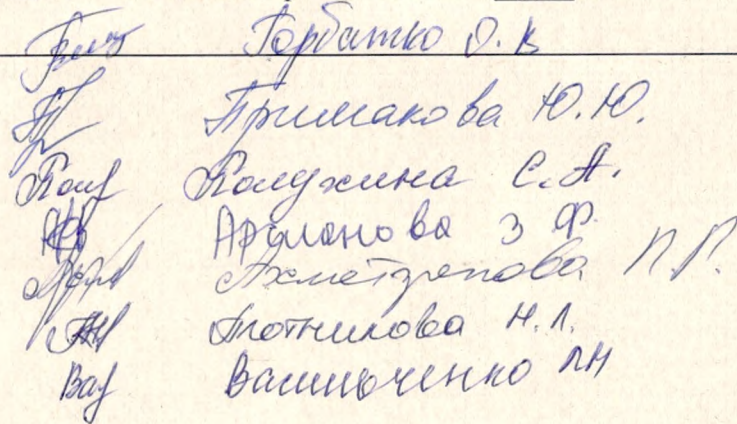 Горбатко О. В
Примакова Ю. Ю.
Калужина С. А.
Арсланова З Ф.
Ахметзянова Л. Г.
Плотникова Н. Л.
Вау Васильченко ЛН